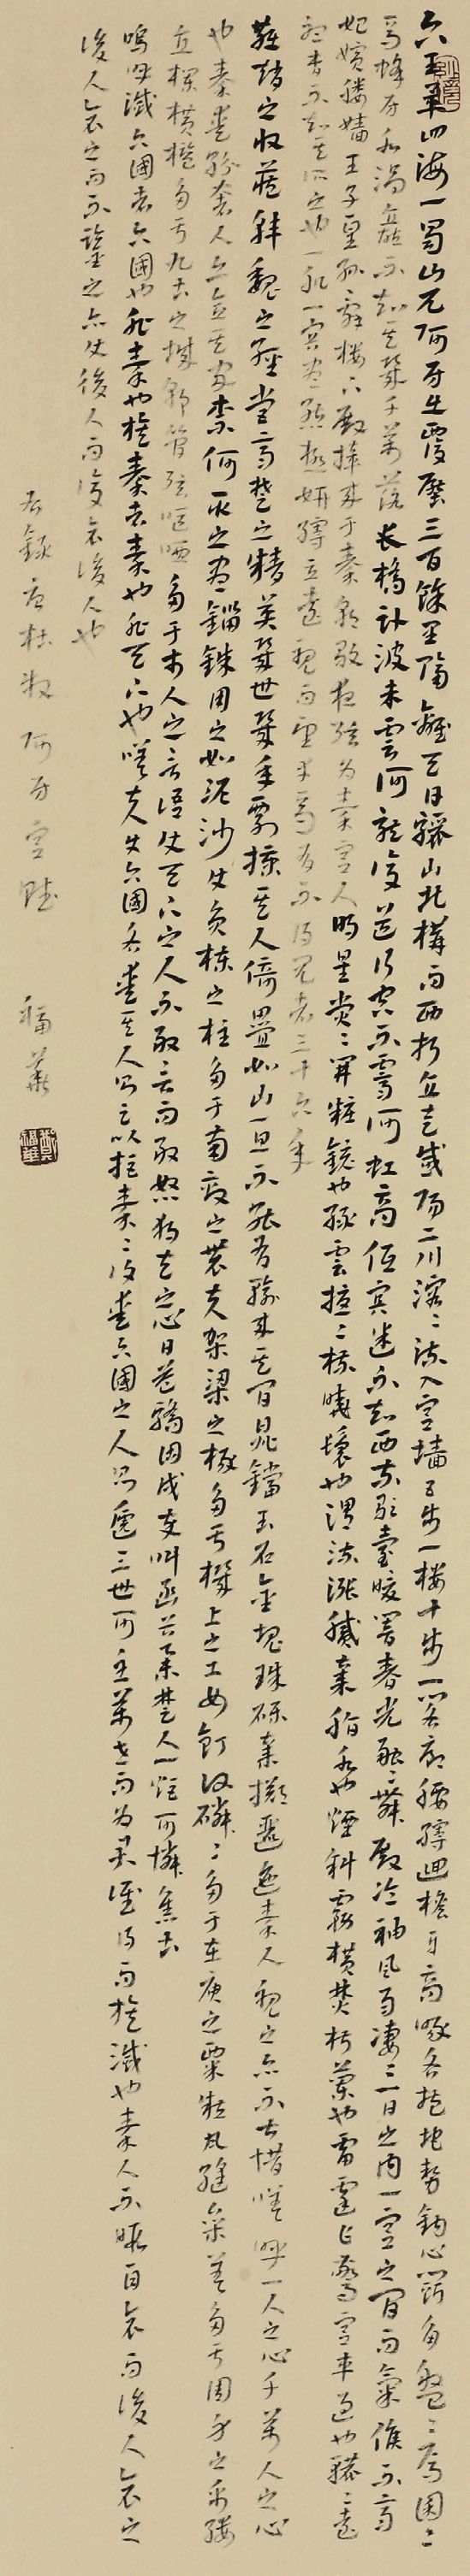 六王畢四海一蜀山兀阿房出覆壓三百餘里隔離天日驪山北構而西折直走咸陽二川溶溶流入宮墻五步一樓十步一閣廊腰縵迴檐牙高啄各抱地勢鉤心鬥角盤盤焉囷囷
焉蜂房水渦矗不知其幾千萬落長橋臥波未雲何龍復道行空不霽何虹高低冥迷不知西東歌臺暖響春光融融舞殿冷袖風雨淒淒一日之內一宮之間而氣候不齊
妃嬪媵嬙王子皇孫辭樓下殿輦來于秦朝歌夜弦為秦宮人明星熒熒開粧鏡也綠雲擾擾梳曉鬟也渭流漲膩棄脂水也煙斜霧橫焚椒蘭也雷霆乍驚宮車過也轆轆遠
聽杳不知其所之也一肌一容盡態極妍縵立遠視而望幸焉有不得見者三十六年
燕趙之收藏韓魏之經營齊楚之精英幾世幾年剽掠其人倚疊如山一旦不能有輸來其間鼎鐺玉石金塊珠礫棄擲邐迤秦人視之亦不甚惜嗟呼一人之心千萬人之心
也秦愛紛奢人亦念其家柰何取之盡錙銖用之如泥沙使負棟之柱多于南畝之農夫架梁之椽多于機上之工女釘頭磷磷多于在庾之粟粒瓦縫參差多于周身之帛縷
直欄橫檻多于九土之城郭管弦嘔啞多于市人之言語使天下之人不敢言而敢怒獨夫之心日益驕固戍卒叫函谷舉楚人一炬可憐焦土
嗚呼滅六國者六國也非秦也族秦者秦也非天下也嗟夫使六國各愛其人則足以拒秦秦復愛六國之人則遞三世可至萬世而為君誰得而族滅也秦人不暇自哀而後人哀之
後人哀之而不鑒之亦使後人而復哀後人也
右錄唐杜牧阿房宮賦 福華
鄭福華